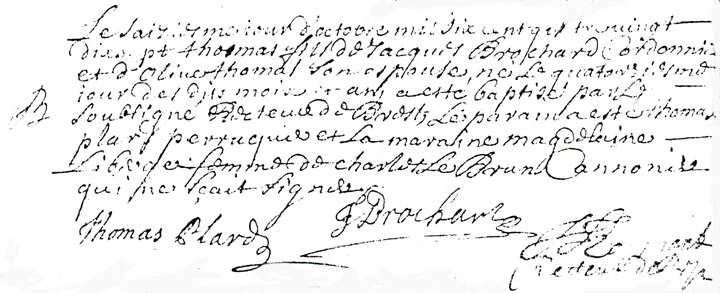 Le saiziesme iour d'octobre mil six cent quatrevingt
dix sept thomas fils de Jacques Brochard Cordonnier
et d'Olive Thomas son esphuse, ne le quatorziesme
iour desdits mois et an, a este baptise par le
B soubsigne Recteur de Brest, Le parain a este Thomas
plard perruquier et la maraine magdelaine
femme de charles Le Brun Cannonier
qui ne sçait signer
Thomas Plard
J Brochard
Recteur de